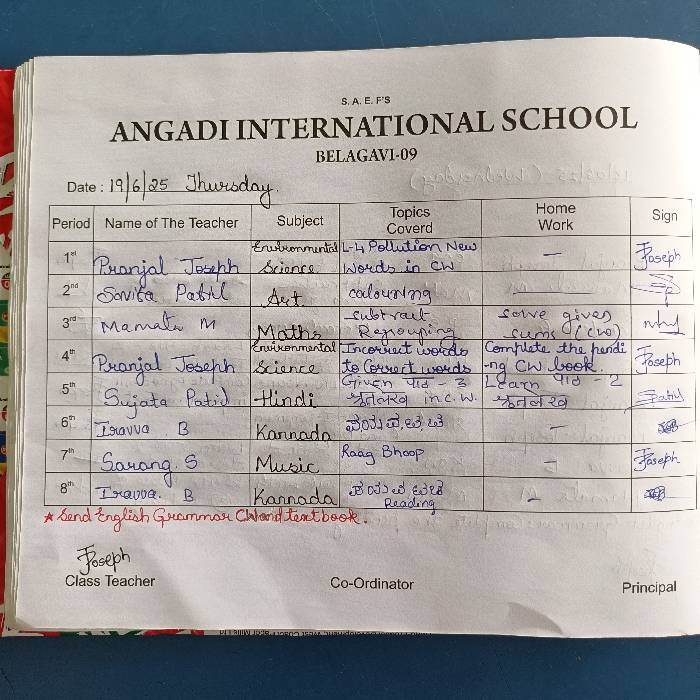 S. A. E. F'S
ANGADI INTERNATIONAL SCHOOL
BELAGAVI-09
Date : 19/6/25 Thursday.
Period Name of The Teacher Subject Topics Coverd Home Work Sign
1st Pranjal Joseph Environmental Science L-4 Pollution New words in CW – Joseph
2nd Savita Patil Art colouring
3rd Mamata M Maths subtract Regrouping solve given sums (CW)
4th Pranjal Joseph Environmental Science Incorrect words to Correct words Complete the pendi -ng CW book. Joseph
5th Sujata Patil Hindi Given पाठ - 3 श्रुतलेख in C.W. Learn पाठ - 2 श्रुतलेख Patil
6th Iravva B Kannada –
7th Sarang. S Music Raag Bhoop – Joseph
8th Iravva. B Kannada Reading –
★ Send English Grammar CW and textbook.
Joseph
Class Teacher Co-Ordinator Principal